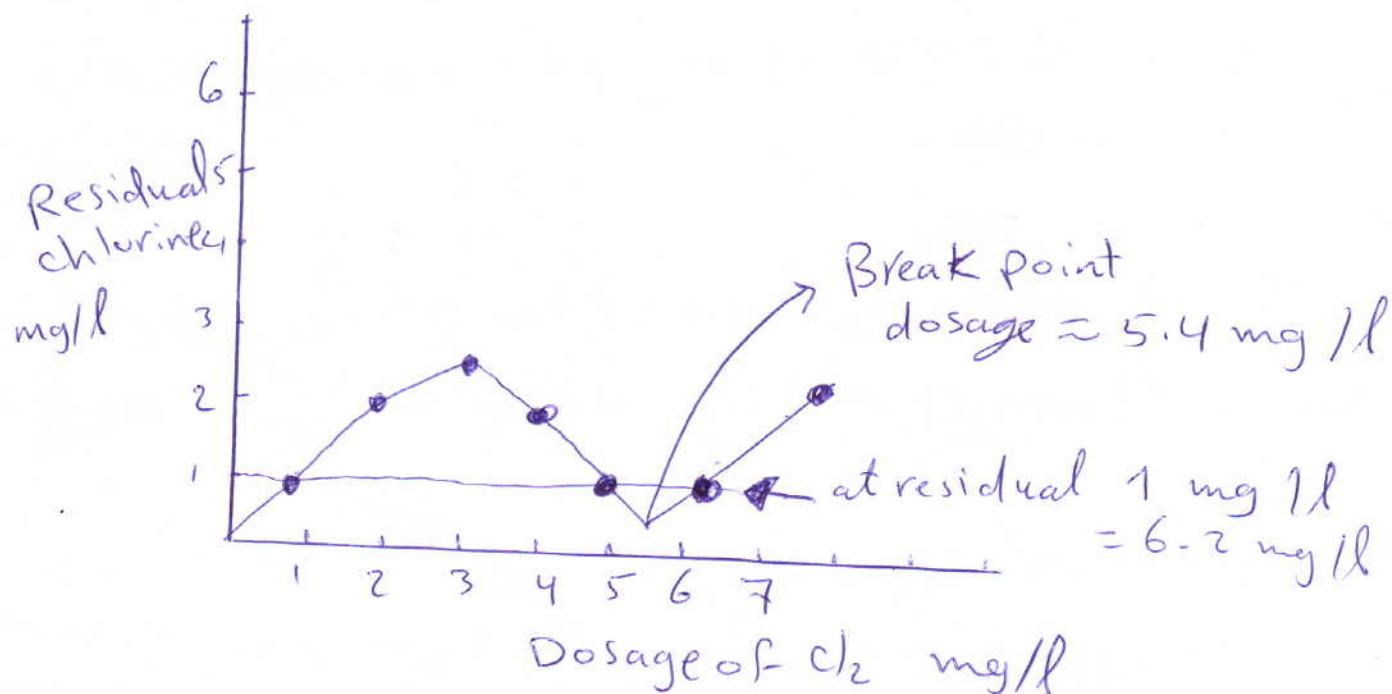 6
5
Residuals
chlorine 4
mg/l
3
2
1
Break point
dosage = 5.4 mg/l
at residual 1 mg/l
= 6.2 mg/l
1 2 3 4 5 6 7
Dosage of Cl2 mg/l